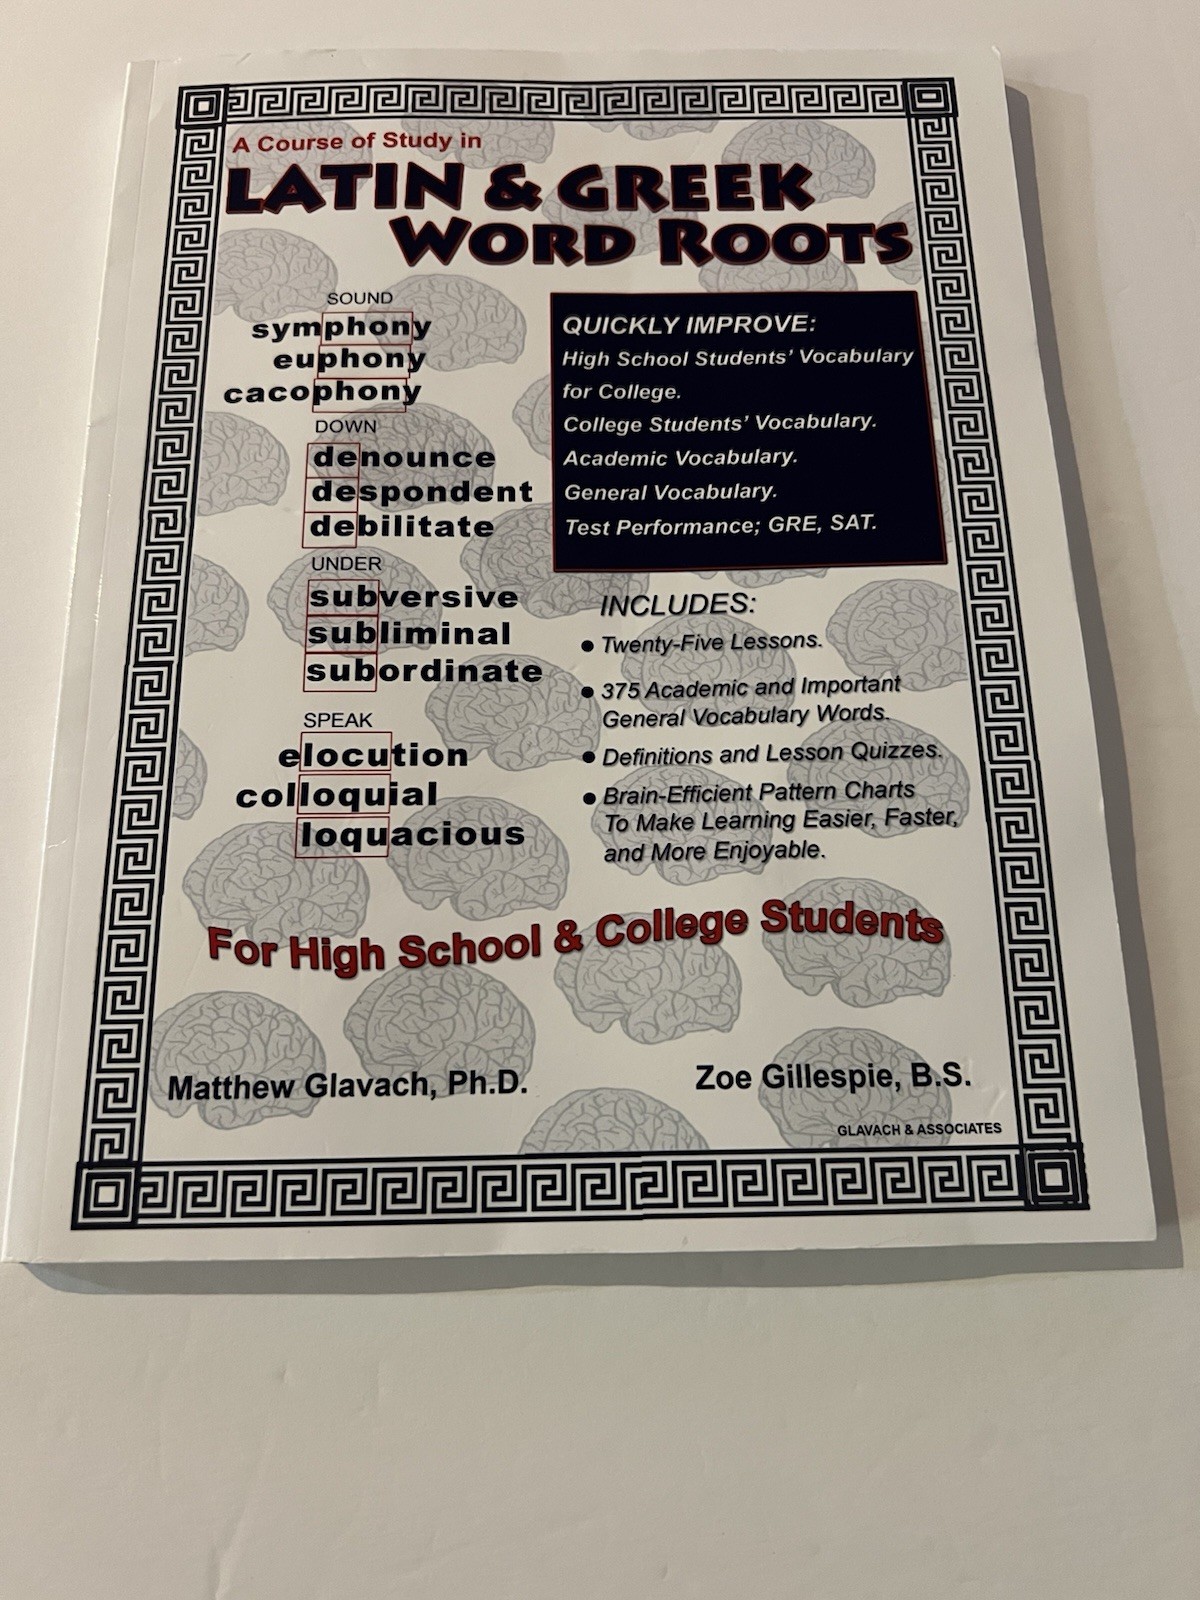 A Course of Study in
LATIN & GREEK
WORD ROOTS
SOUND
symphony
euphony
cacophony
DOWN
denounce
despondent
debilitate
UNDER
subversive
subliminal
subordinate
SPEAK
elocution
colloquial
loquacious
QUICKLY IMPROVE:
High School Students' Vocabulary
for College.
College Students' Vocabulary.
Academic Vocabulary.
General Vocabulary.
Test Performance; GRE, SAT.
INCLUDES:
• Twenty-Five Lessons.
• 375 Academic and Important
General Vocabulary Words.
• Definitions and Lesson Quizzes.
• Brain-Efficient Pattern Charts
To Make Learning Easier, Faster,
and More Enjoyable.
For High School & College Students
Matthew Glavach, Ph.D.
Zoe Gillespie, B.S.
GLAVACH & ASSOCIATES